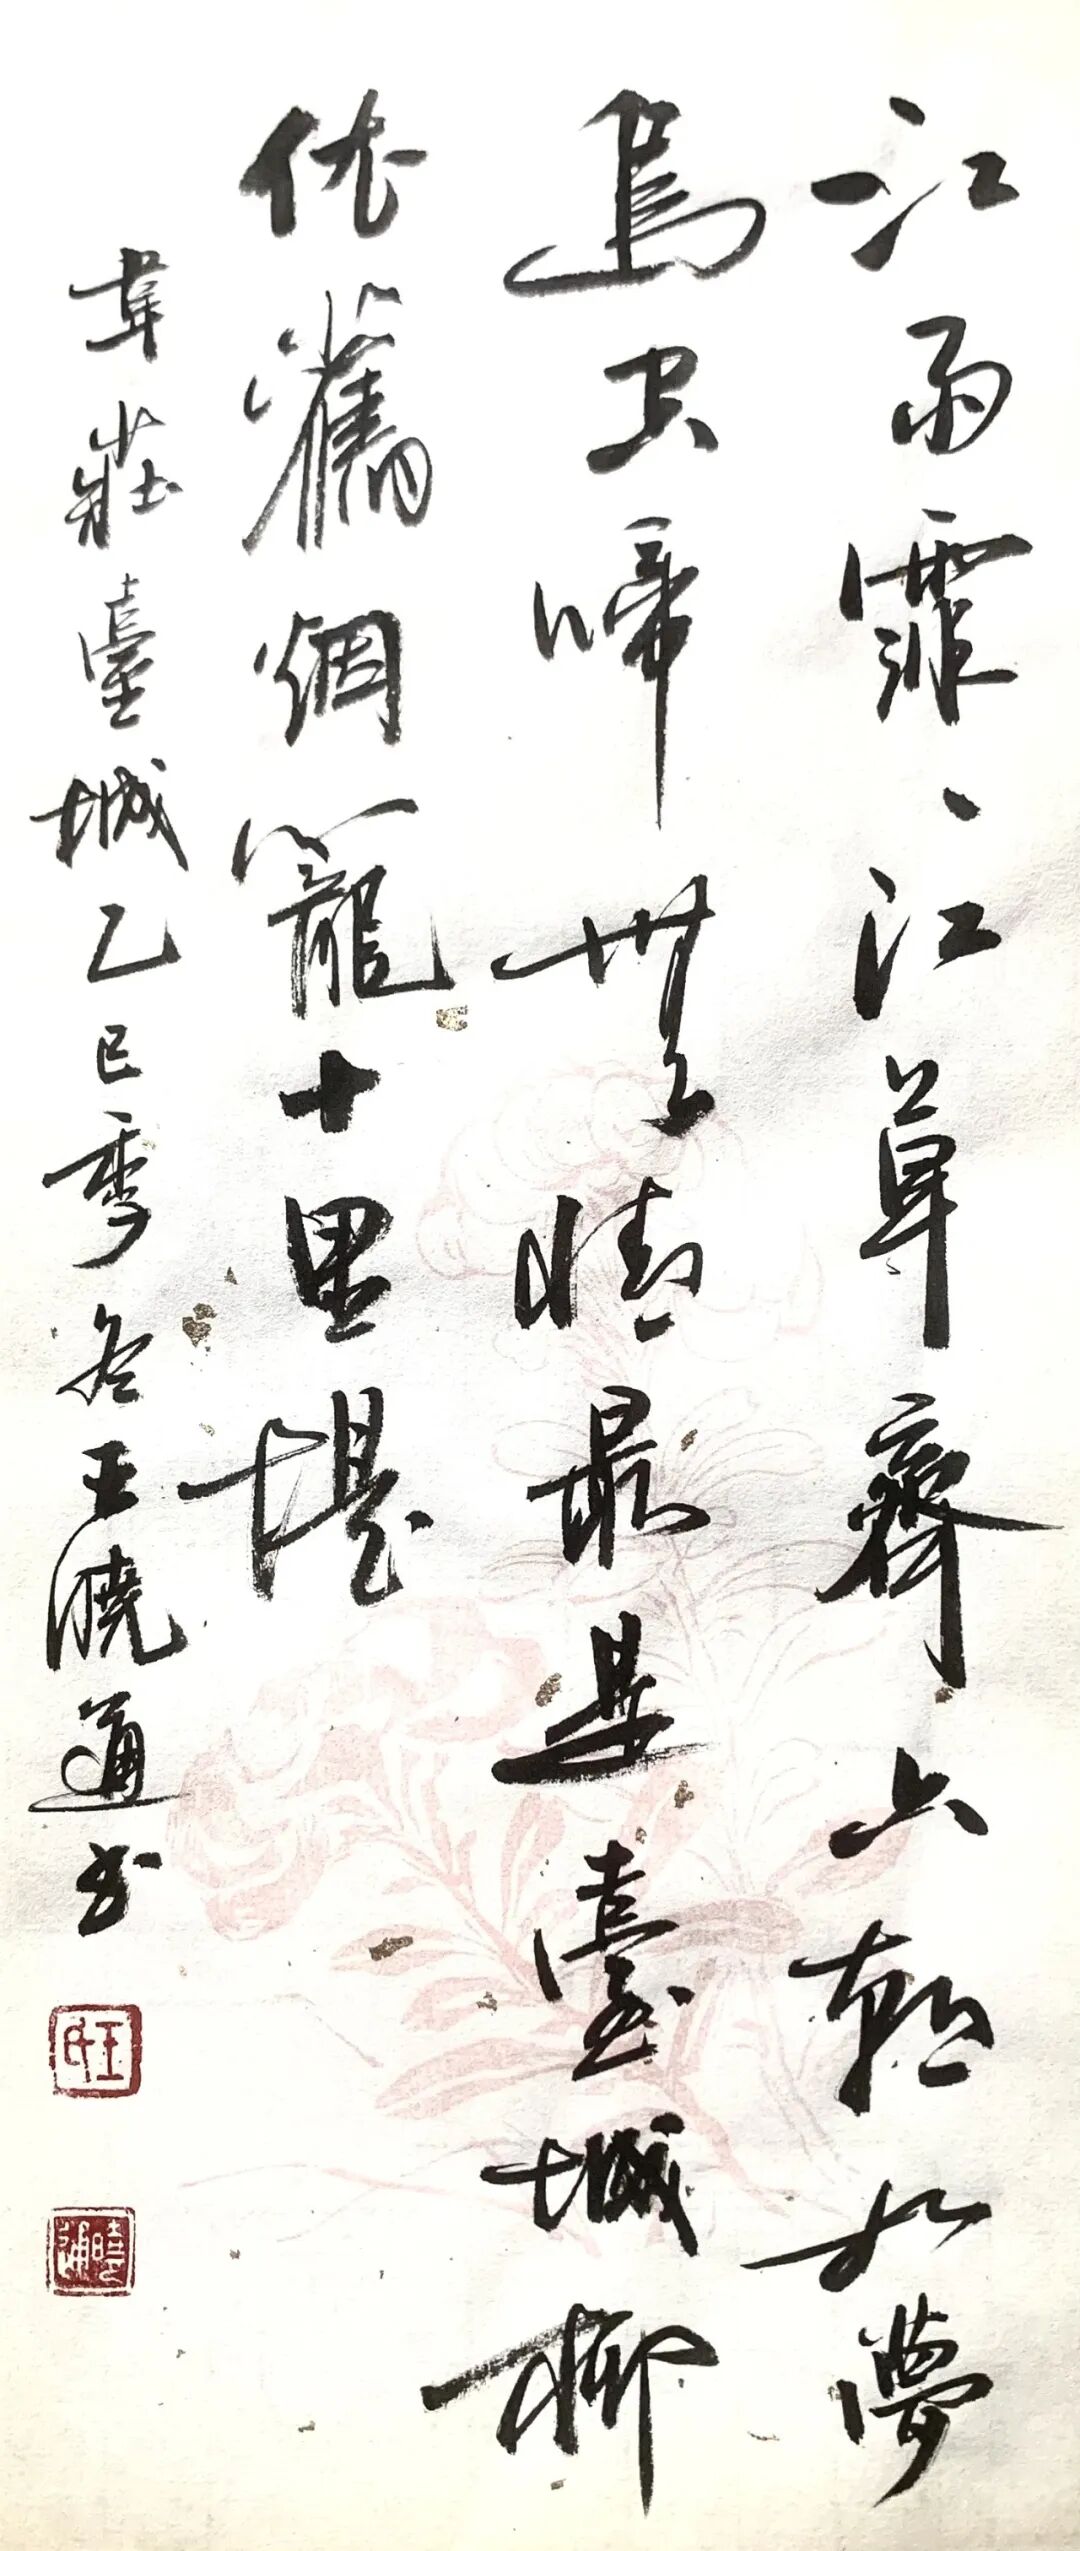 江雨霏、江草齊六朝如夢
鳥空啼無情最是臺城柳
依舊烟籠十里堤
韋莊臺城乙巳季冬王曉通书
王氏
曉通